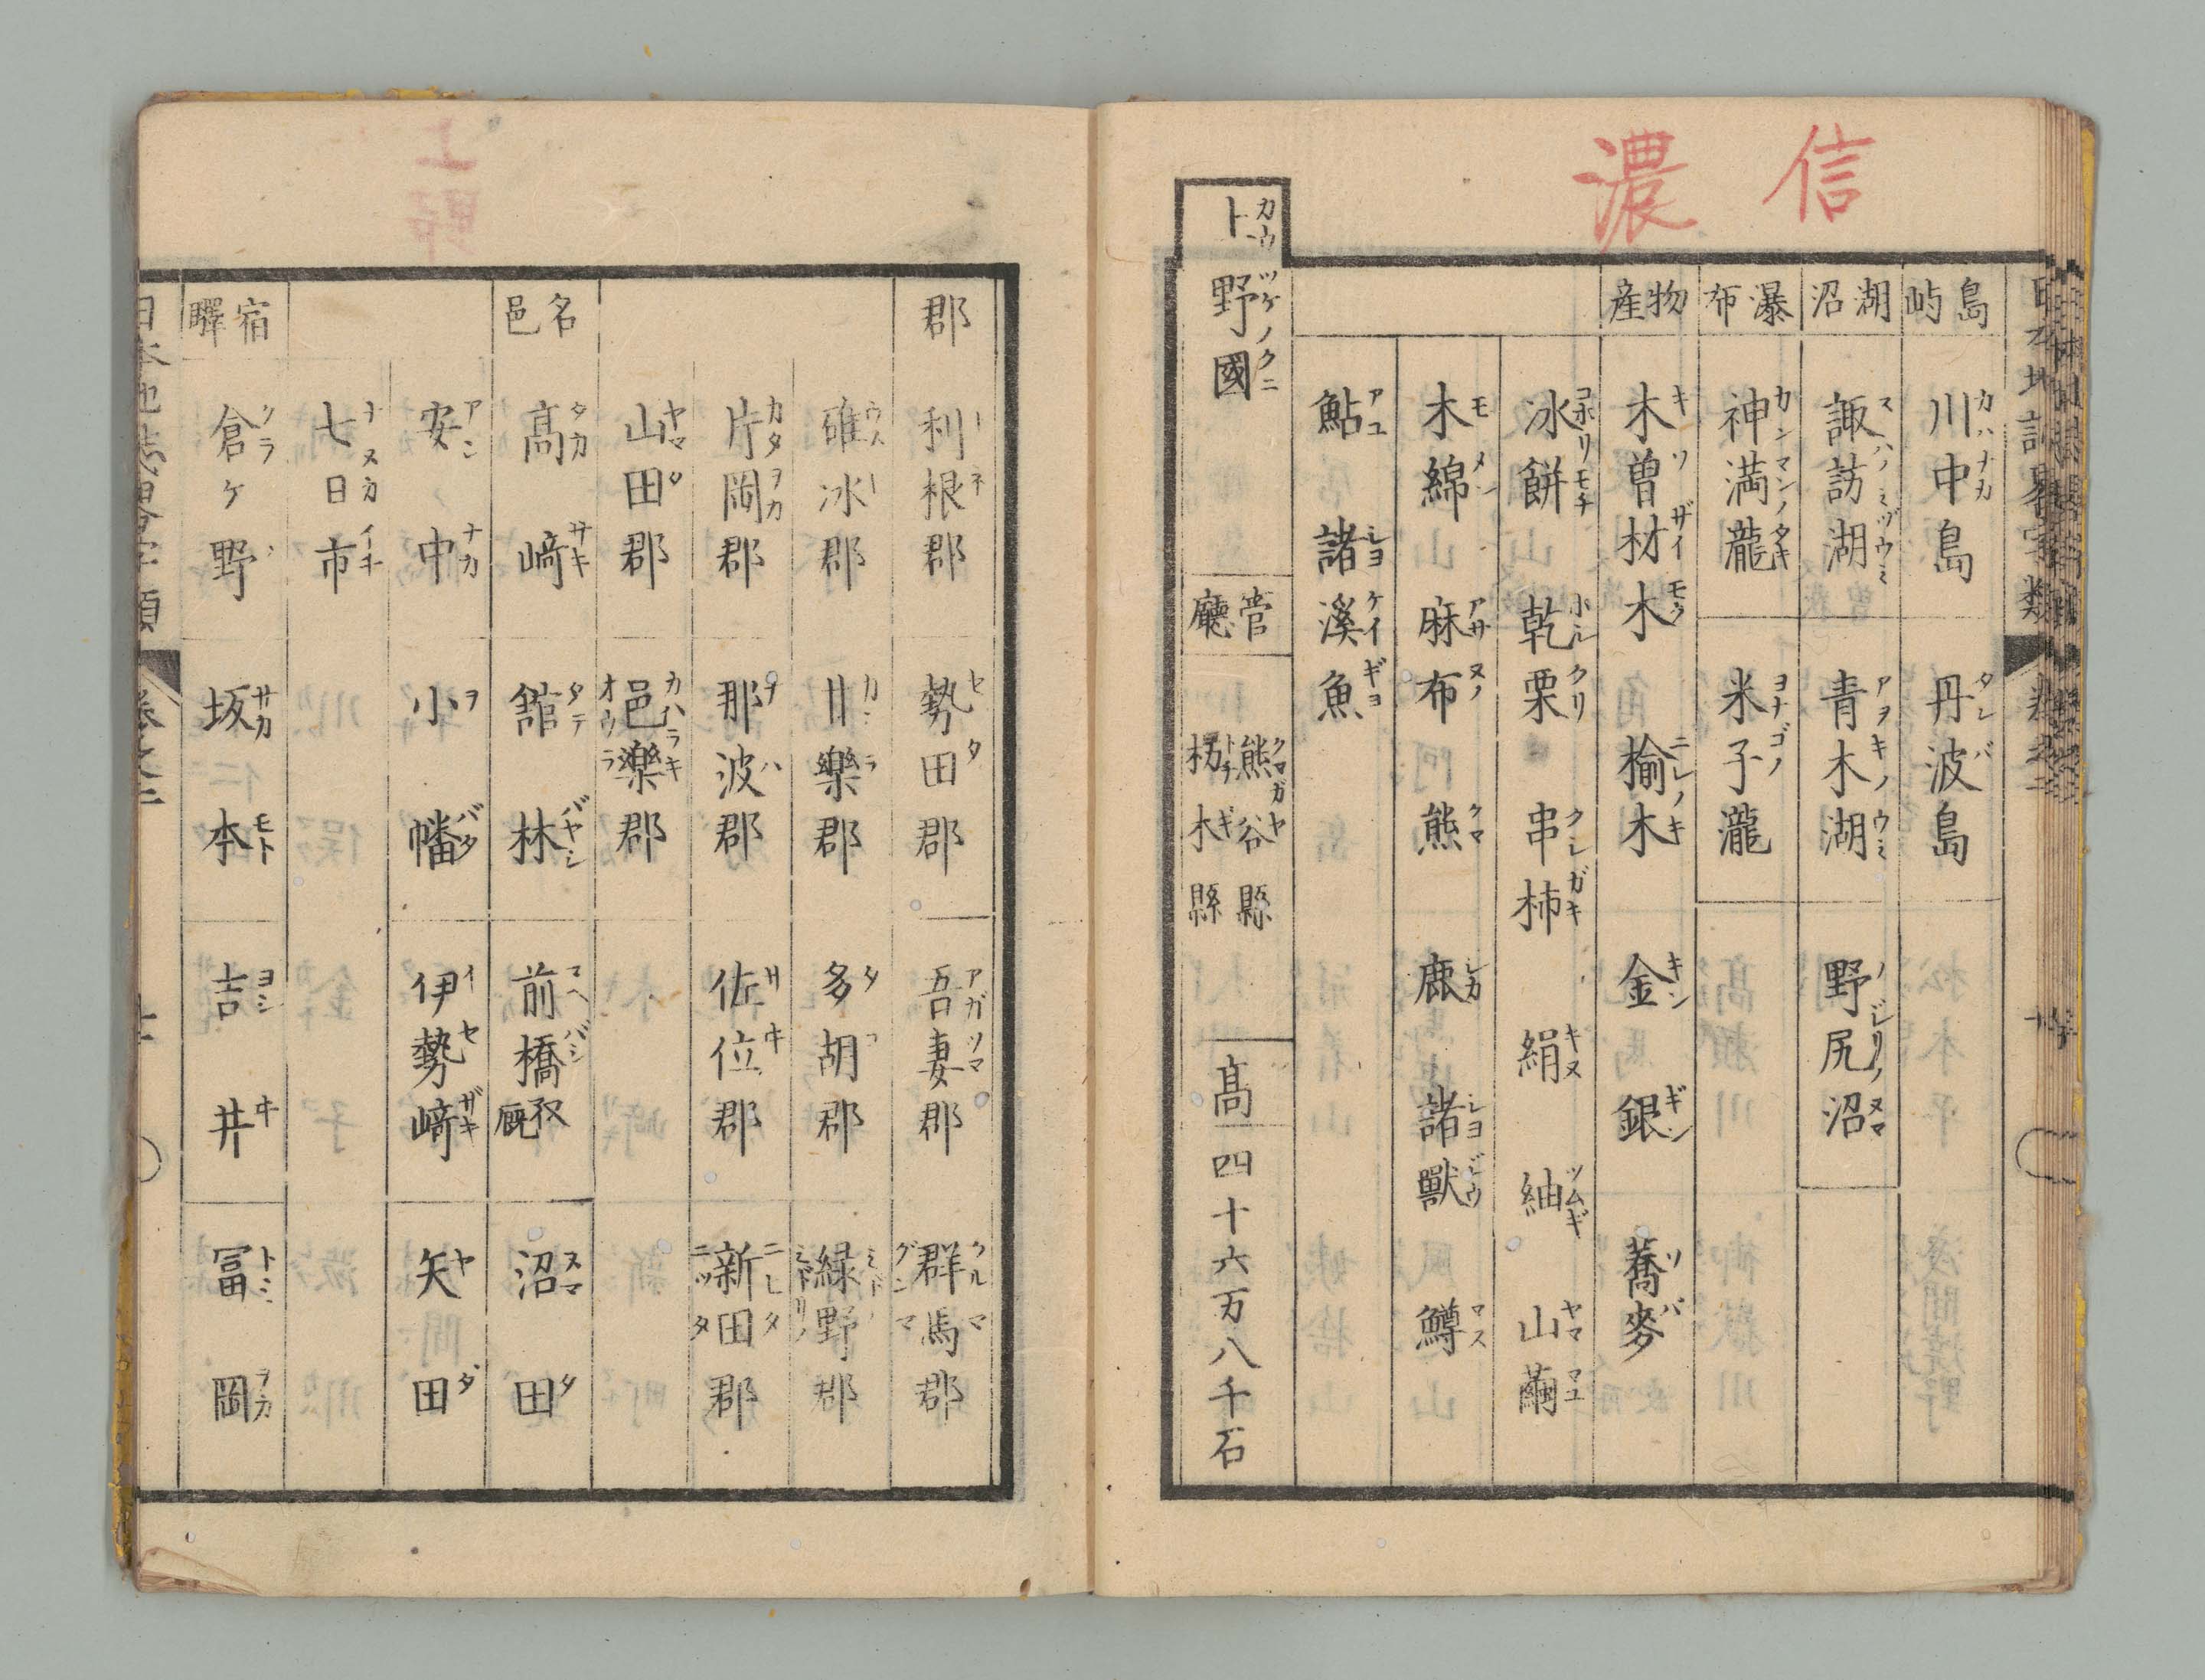 信濃
島嶼 川中島 丹波島
湖沼 諏訪湖 青木湖 野尻沼
瀑布 神満瀧 米子瀧
物産 木曽材木 楡木 金 銀 蕎麥
氷餅 乾栗 串柿 絹 紬 山繭
木綿 麻布 熊 鹿 諸獸 鱒
鮎 諸溪魚
野國 管廳 熊谷縣 栃木縣 高 四十六万八千石
郡 利根郡 勢田郡 吾妻郡 群馬郡
碓氷郡 甘樂郡 多胡郡 緑野郡
片岡郡 那波郡 佐位郡 新田郡
山田郡 邑樂郡
名邑 高崎 舘林 前橋 沼田
安中 小幡 伊勢崎 矢田
七日市
宿驛 倉ケ野 坂本 吉井 冨岡